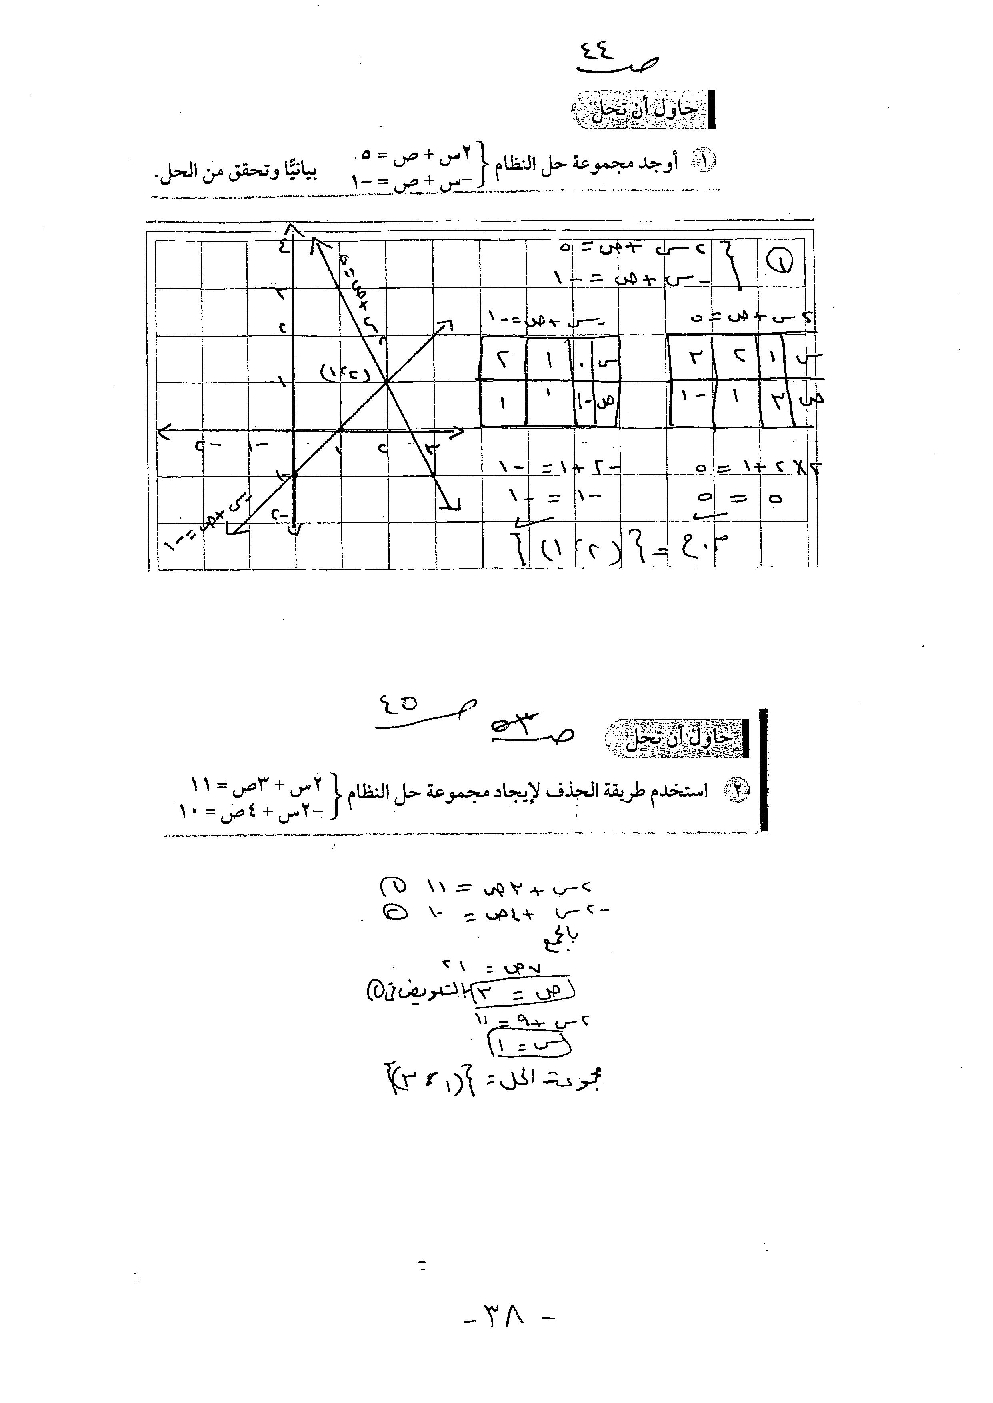 ص ٤٤
حاول أن تحل
١ أوجد مجموعة حل النظام { ٢س + ص = ٥ ، -س + ص = -١ بيانيًّا وتحقق من الحل.
١ { ٢س + ص = ٥
-س + ص = -١
٢س + ص = ٥
س ١ ٢ ٣
ص ٣ ١ -١
-س + ص = -١
س ٠ ١ ٢
ص -١ ٠ ١
٢×٢ + ١ = ٥
٥ = ٥
-٢ + ١ = -١
-١ = -١
م.ح = {(٢، ١)}
٤
٣
٢
١
-٢ -١ ١ ٢ ٣
-١
-٢
(٢، ١)
٢س + ص = ٥
-س + ص = -١
ص ٥٣
ص ٤٥
حاول أن تحل
٢ استخدم طريقة الحذف لإيجاد مجموعة حل النظام { ٢س + ٣ص = ١١ ، -٢س + ٤ص = ١٠
٢س + ٣ص = ١١ ①
-٢س + ٤ص = ١٠ ②
بالجمع
٧ص = ٢١
ص = ٣ بالتعويض في ①
٢س + ٩ = ١١
س = ١
مجموعة الحل = {(١، ٣)}
- ٣٨ -